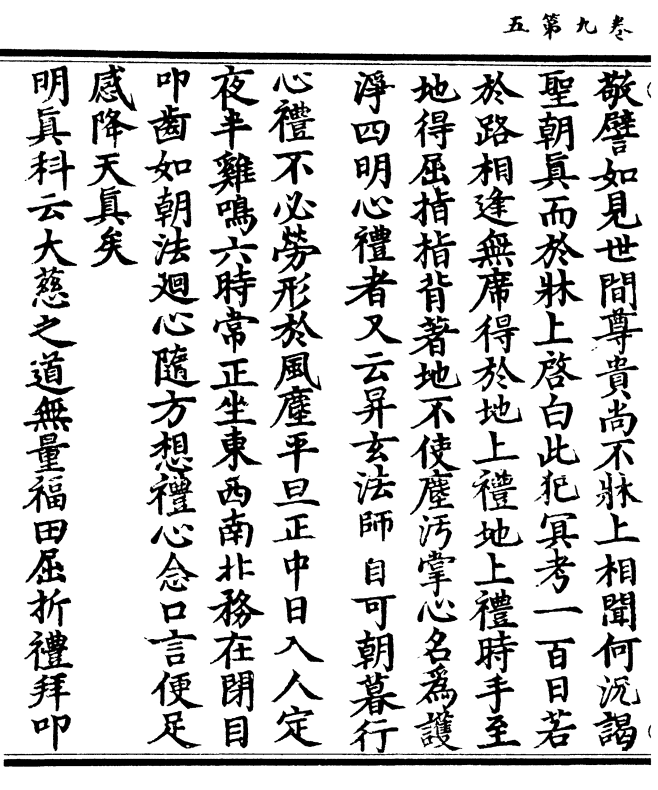 卷九第五
敬譬如見世間尊貴尚不牀上相聞何況謁
聖朝眞而於牀上啓白此犯冥考一百日若
於路相逢無席得於地上禮地上禮時手至
地得屈指指背著地不使塵汚掌心名爲護
淨四明心禮者又云昇玄法師自可朝暮行
心禮不必勞形於風塵平旦正中日入人定
夜半雞鳴六時常正坐東西南北務在閉目
叩齒如朝法迴心隨方想禮心念口言便足
感降天眞矣
明眞科云大慈之道無量福田屈折禮拜叩